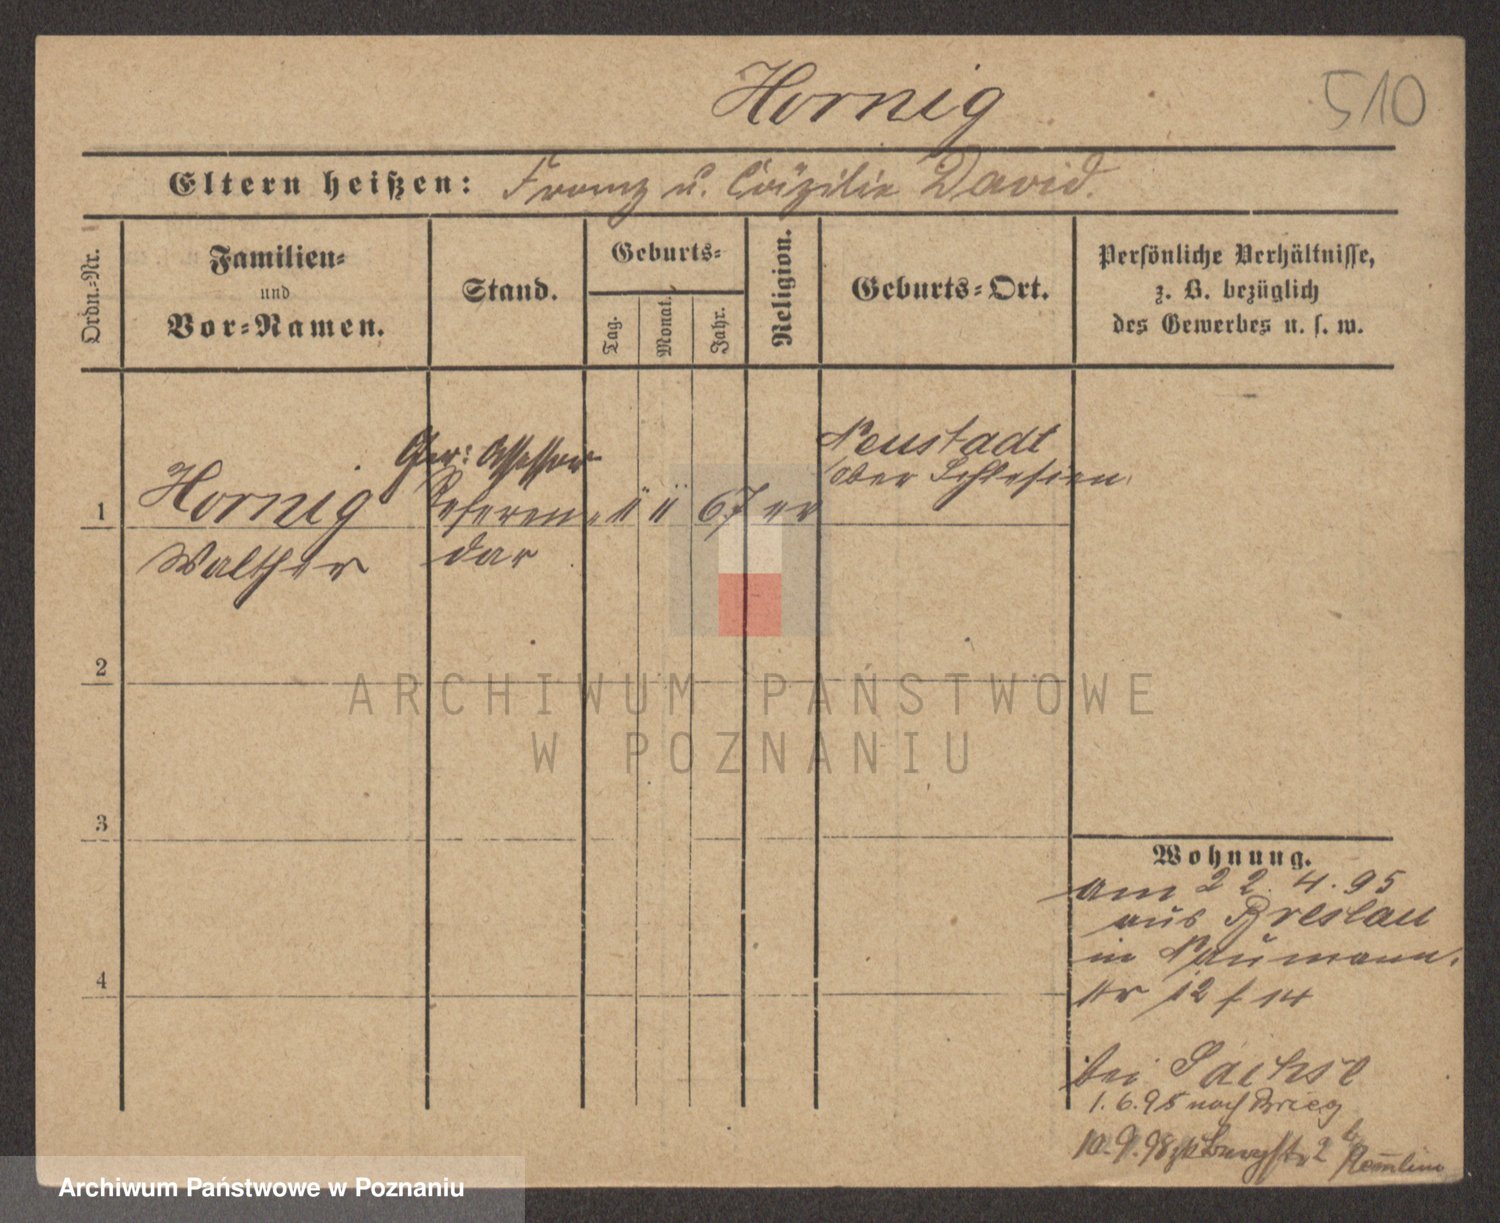 Hornig
510
Eltern heißen: Franz u. Cäzilie David.
Ordn.-Nr.
Familien-
und
Vor-Namen.
Stand.
Geburts-
Tag.
Monat.
Jahr.
Religion.
Geburts-Ort.
Persönliche Verhältnisse,
z. B. bezüglich
des Gewerbes u. s. w.
1
Hornig
Walther
Ger: Assessor
Referen-
dar
11 11 67 ev
Neustadt
Ober Schlesien
2
3
4
Wohnung.
am 22.4.95
aus Breslau
in Naumann-
str 12 / 14
bei Sachse
1.6.95 nach Brieg
10.9.98 2 b/
ARCHIWUM PAŃSTWOWE
W POZNANIU
Archiwum Państwowe w Poznaniu